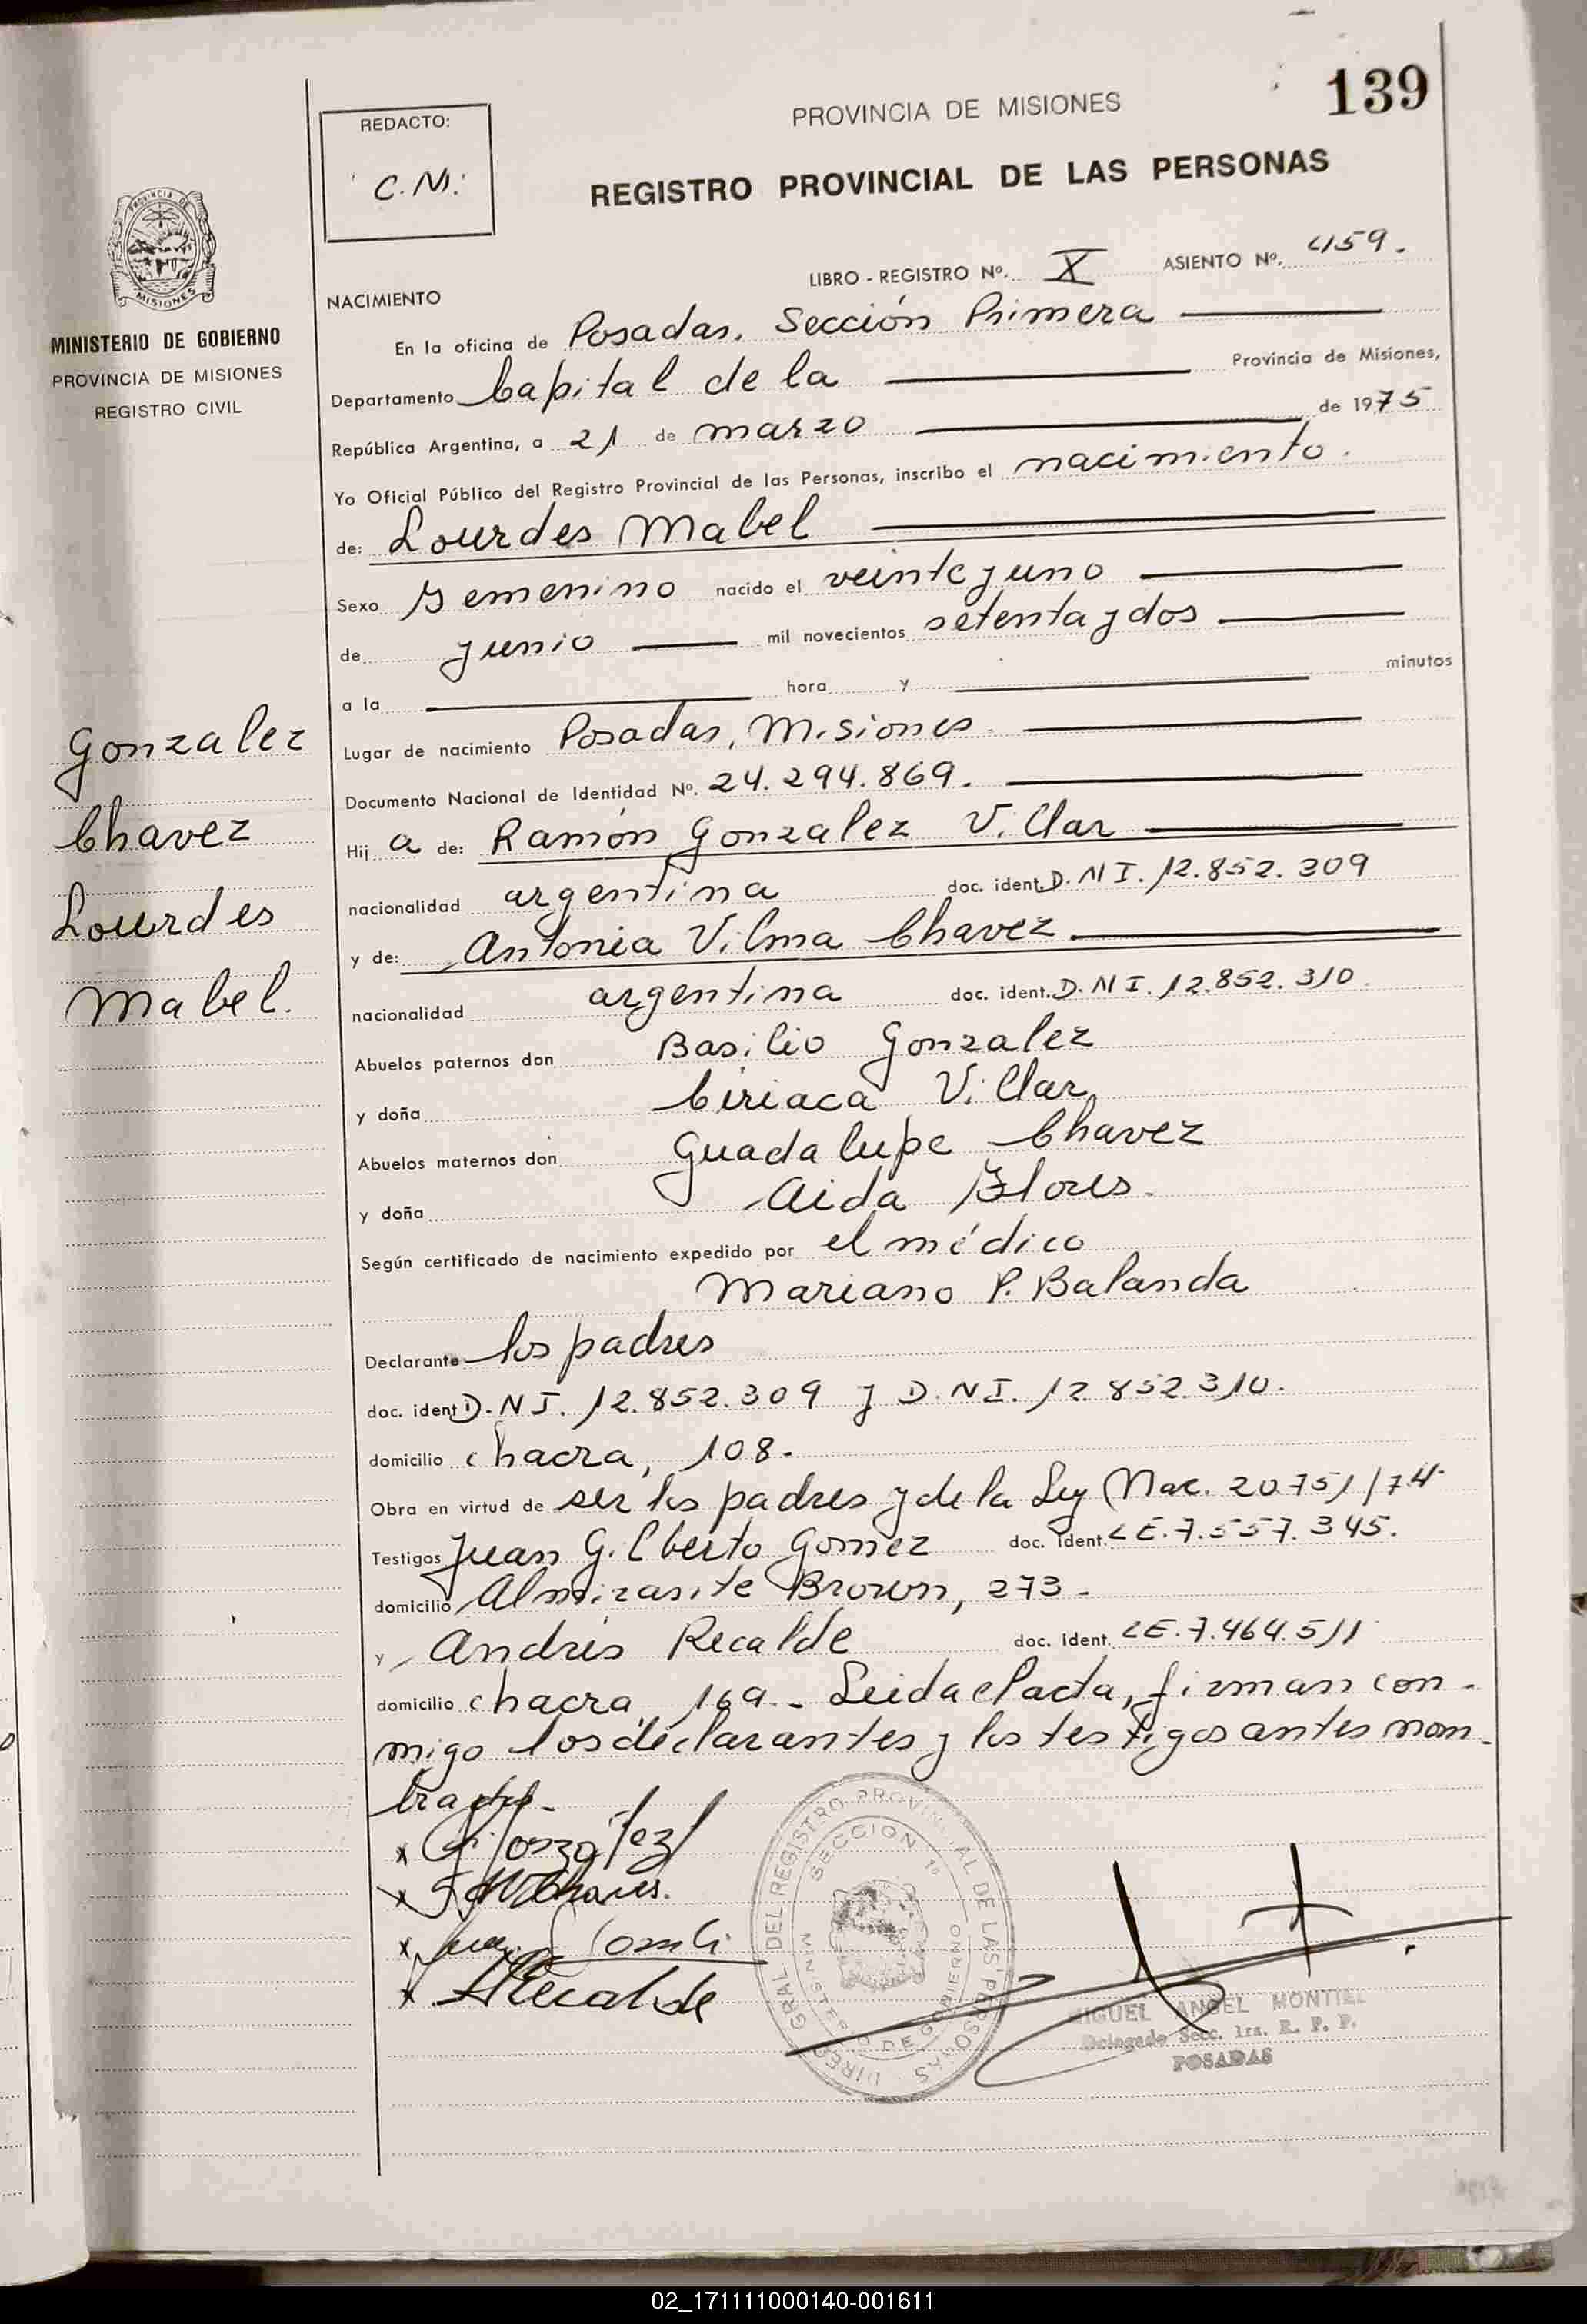 139
PROVINCIA DE MISIONES
REGISTRO PROVINCIAL DE LAS PERSONAS
REDACTO:
C.M.
PROVINCIA DE
MISIONES
MINISTERIO DE GOBIERNO
PROVINCIA DE MISIONES
REGISTRO CIVIL
LIBRO - REGISTRO Nº. X ASIENTO Nº. 459.
NACIMIENTO
En la oficina de Posadas, Sección Primera
Departamento Capital de la Provincia de Misiones,
República Argentina, a 21 de marzo de 1975
Yo Oficial Público del Registro Provincial de las Personas, inscribo el nacimiento.
de: Lourdes Mabel
Sexo Femenino nacido el veinte y uno
de junio mil novecientos setenta y dos
a la hora y minutos
Lugar de nacimiento Posadas, Misiones
Documento Nacional de Identidad Nº. 24.294.869.
Hij a de: Ramón Gonzalez Villar
nacionalidad argentina doc. ident. D.N I. 12.852.309
y de: Antonia Vilma Chavez
nacionalidad argentina doc. ident. D.N I. 12.852.310
Abuelos paternos don Basilio Gonzalez
y doña Ciriaca Villar
Abuelos maternos don Guadalupe Chavez
y doña Aida Flores.
Según certificado de nacimiento expedido por el médico
Mariano P. Balanda
Declarante los padres
doc. ident D.N I. 12.852.309 y D.N I. 12.852.310.
domicilio chacra, 108.
Obra en virtud de ser los padres y de la Ley Nac. 20.751/74
Testigos Juan Gilberto Gomez doc. ident. LE.7.557.345.
domicilio Almirante Brown, 273.
y Andrés Recalde doc. ident. LE.7.464.511
domicilio chacra, 169.- Leida el acta, firman con-
migo los declarantes y los testigos antes nom-
brados.
Gonzalez
Chavez
Lourdes
Mabel.
x González
x Chaves.
x
x ARecalde
DIREC. GRAL. DEL REGISTRO PROVINCIAL DE LAS PERSONAS
SECCION 1ª
MINISTERIO DE GOBIERNO
MIGUEL ANGEL MONTIEL
Delegado Secc. 1ra. R. P. P.
POSADAS
02_171111000140-001611